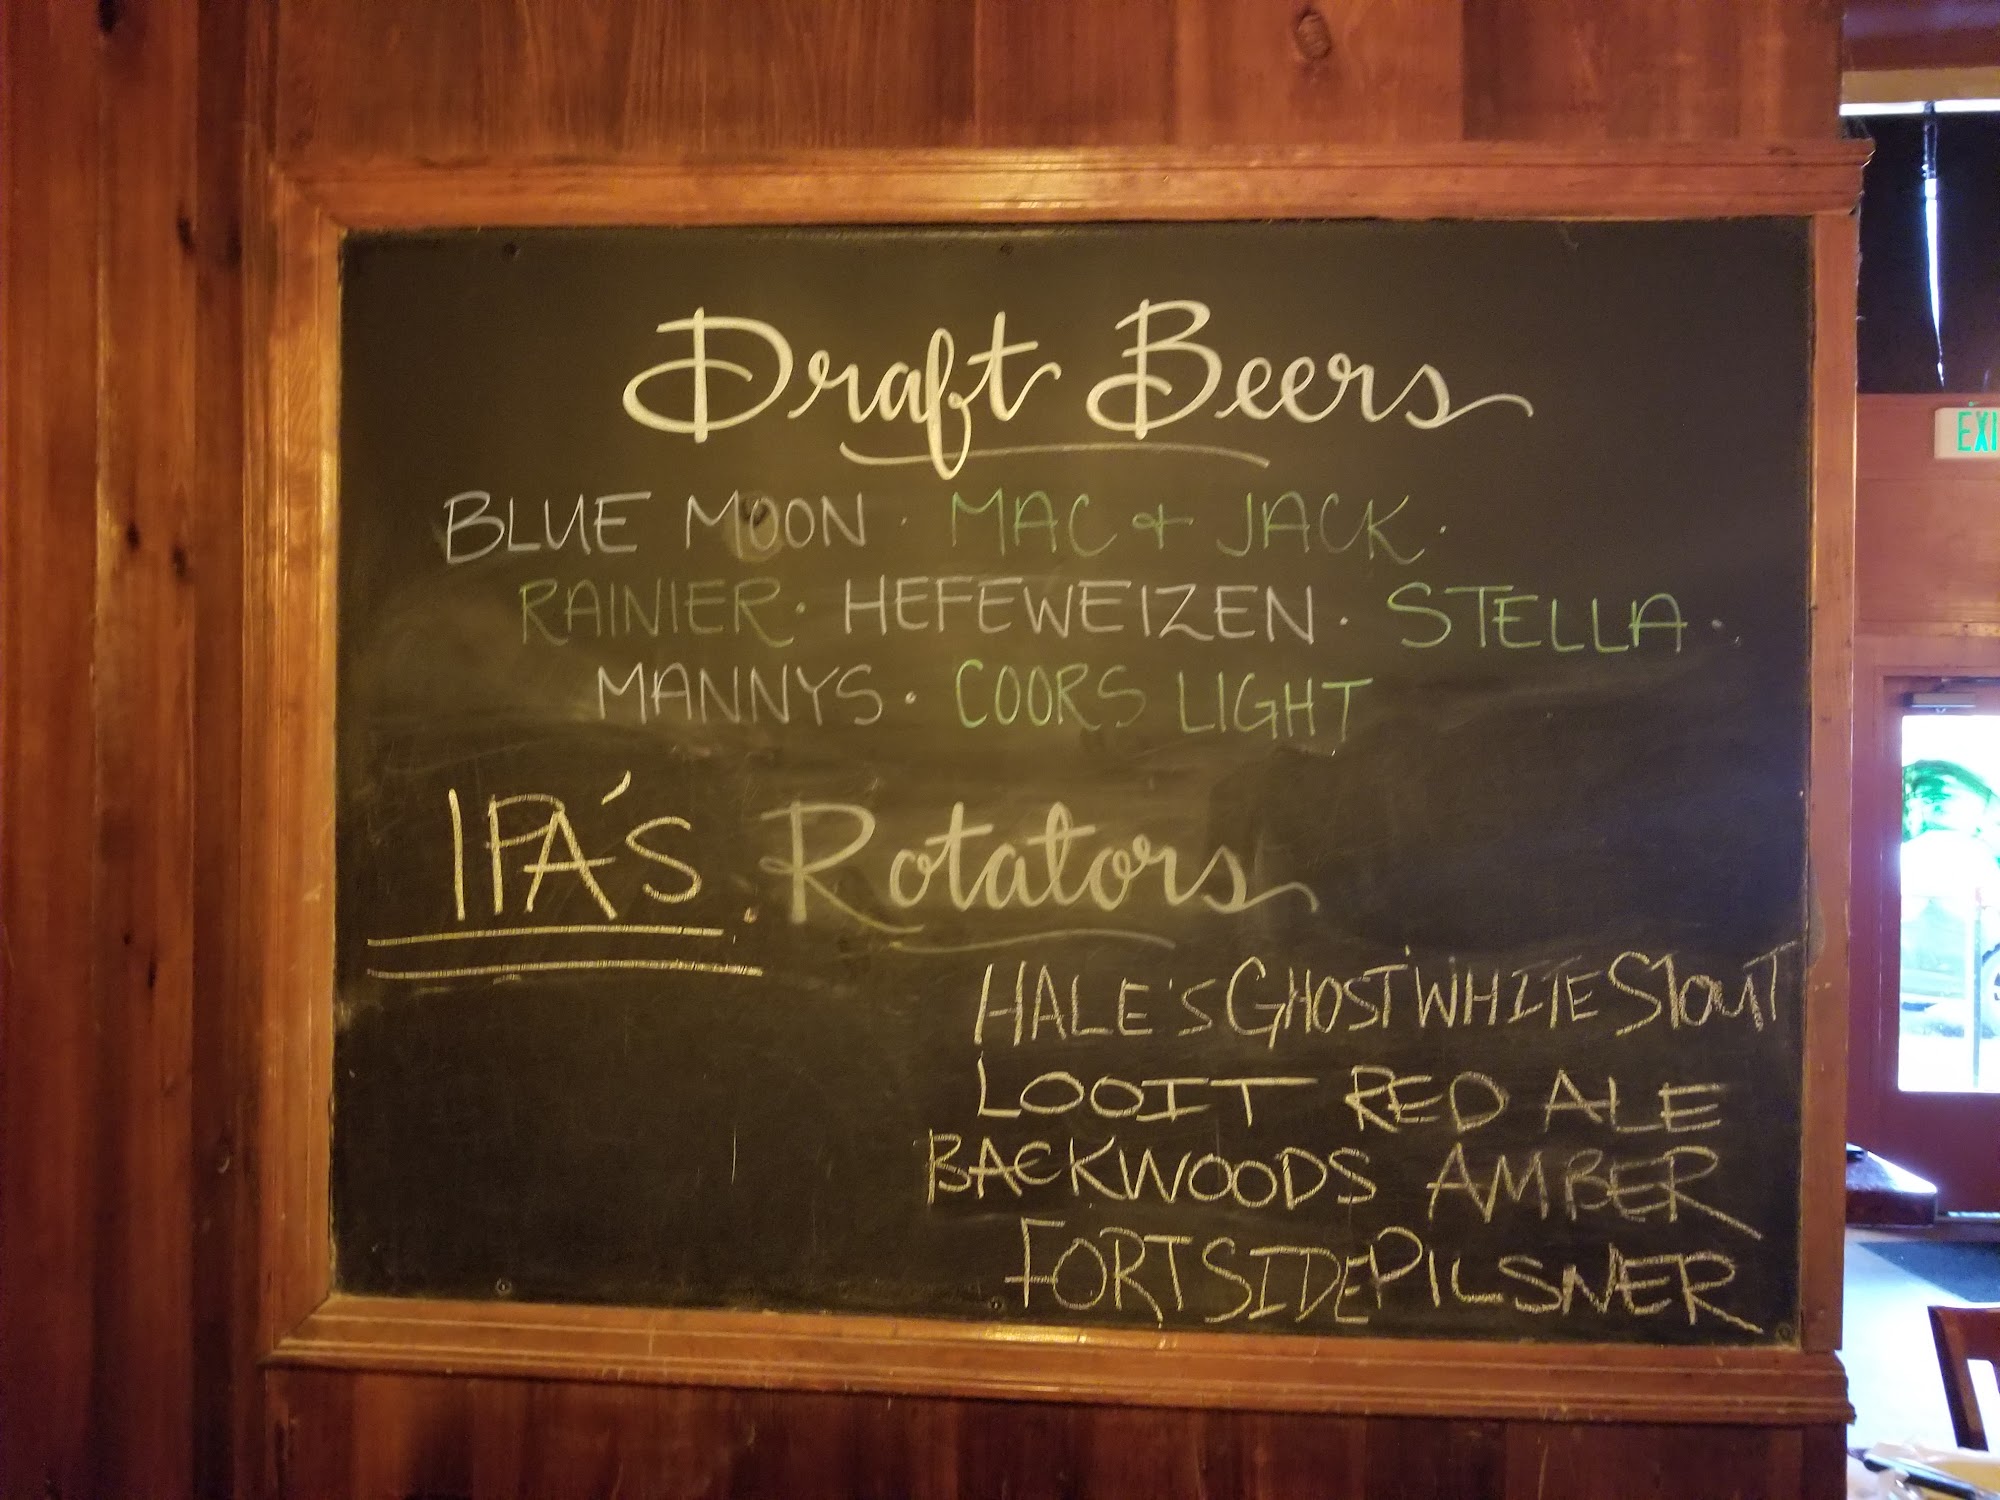 Draft Beers
BLUE MOON · MAC + JACK ·
RAINIER · HEFEWEIZEN · STELLA ·
MANNYS · COORS LIGHT
IPA'S . Rotators
HALE'S GHOST WHITE STOUT
LOOIT RED ALE
BACKWOODS AMBER
FORTSIDE PILSNER
EXI